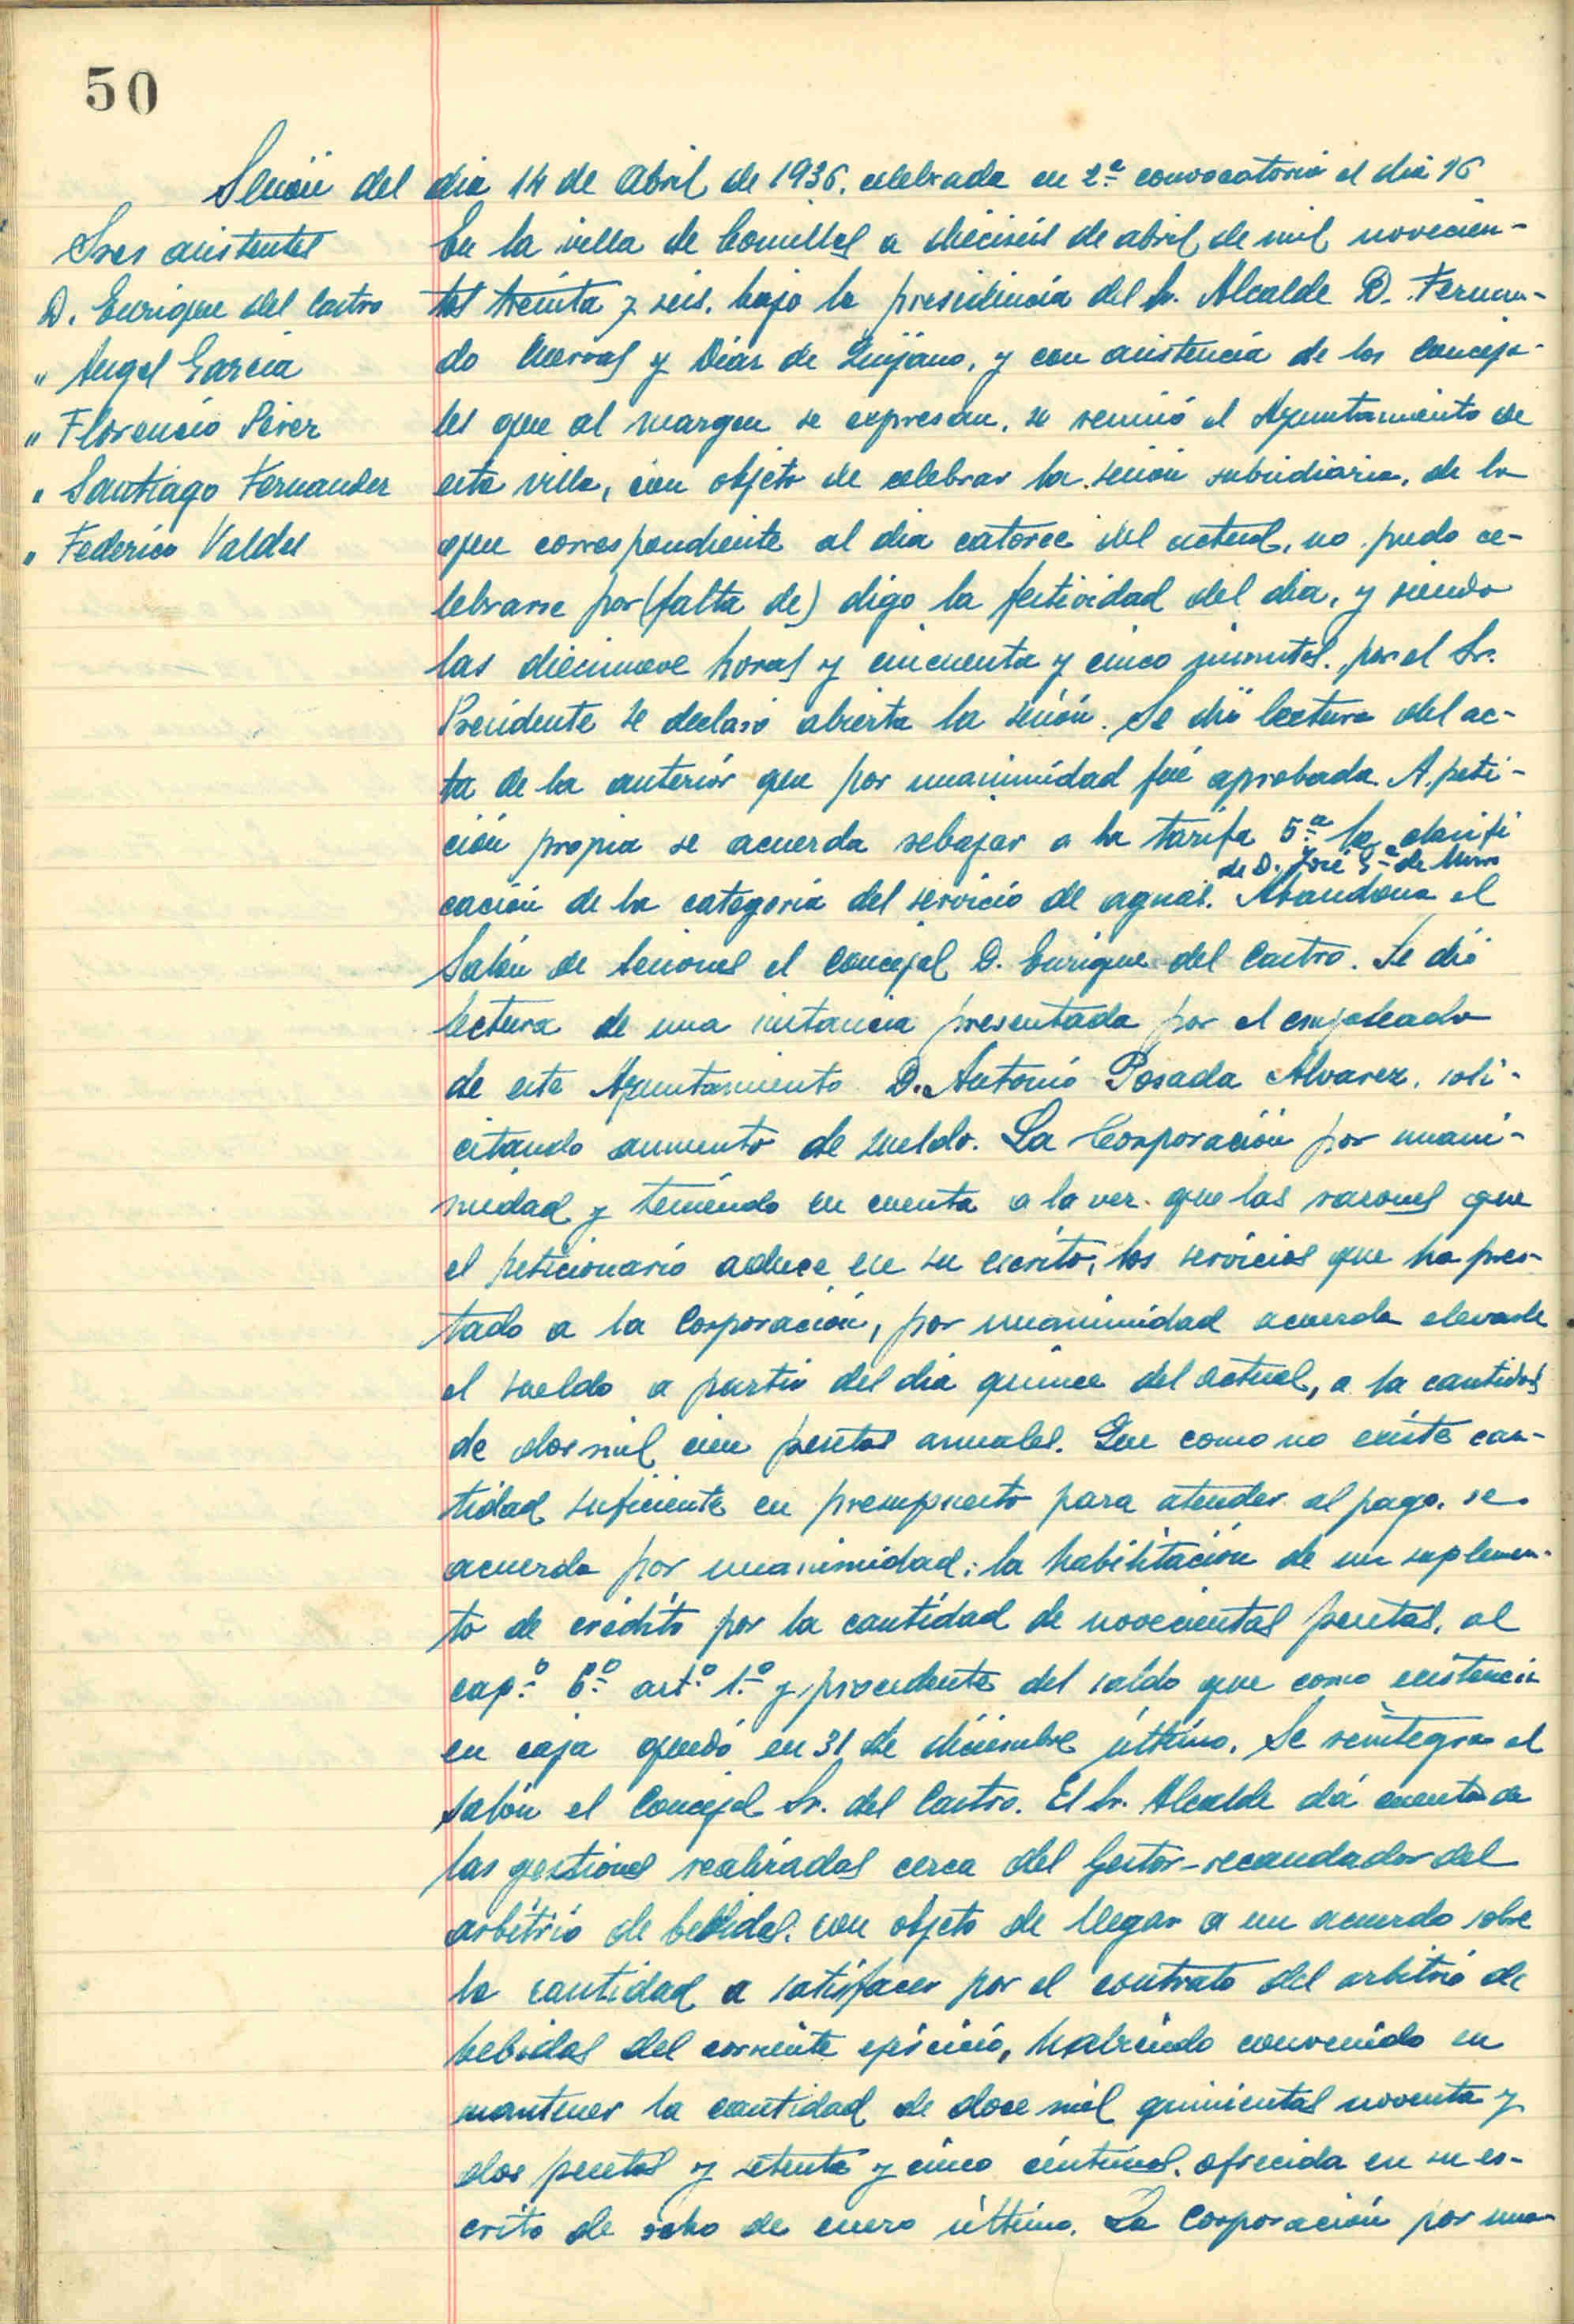 50
Sesión del dia 14 de Abril de 1936. celebrada en 2ª convocatoria el dia 16
Sres asistentes
D. Enrique del Castro
" Angel Garcia
" Florencio Pérez
" Santiago Fernandez
" Federico Valdes
En la villa de Comillas a dieciseis de abril de mil novecien-
tos treinta y seis. bajo la presidencia del Sr. Alcalde D. Fernan-
do y Diaz de Quijano, y con asistencia de los Conceja-
les que al margen se expresan, se reunió el Ayuntamiento de
esta villa, con objeto de celebrar la sesión subsidiaria, de la
que correspondiente al dia catorce del actual, no pudo ce-
lebrarse por (falta de) digo la festividad del dia, y siendo
las diecinueve horas y cincuenta y cinco minutos. por el Sr.
Presidente se declaró abierta la sesión. Se dió lectura del ac-
ta de la anterior que por unanimidad fué aprobada. A peti-
ción propia se acuerda rebajar a la tarifa 5ª la clasifi
de D. José Gª de
cación de la categoria del servicio de aguas. Abandona el
Salón de Sesiones el Concejal D. Enrique del Castro. Se dió
lectura de una instancia presentada por el empleado
de este Ayuntamiento D. Antonio Posada Alvarez. soli-
citando aumento de sueldo. La Corporación por unani-
midad y teniendo en cuenta a la vez que las razones que
el peticionario aduce en su escrito, los servicios que ha pres-
tado a la Corporación, por unanimidad acuerda elevarle
el sueldo a partir del dia quince del actual, a la cantidad
de dos mil cien pesetas anuales. Que como no existe can-
tidad suficiente en presupuesto para atender al pago. se
acuerda por unanimidad; la habilitación de un suplemen-
to de crédito por la cantidad de novecientas pesetas, al
cap.º 6.º art.º 1.º y procedente del saldo que como existencia
en caja quedó en 31 de diciembre último. Se reintegra al
salón el Concejal Sr. del Castro. El Sr. Alcalde dá cuenta de
las gestiones realizadas cerca del Gestor-recaudador del
arbitrio de bebidas. con objeto de llegar a un acuerdo sobre
la cantidad a satisfacer por el contrato del arbitrio de
bebidas del corriente ejercicio, habiendo convenido en
mantener la cantidad de doce mil quinientas noventa y
dos pesetas y setenta y cinco céntimos. ofrecida en su es-
crito de ocho de enero último. La Corporación por una-